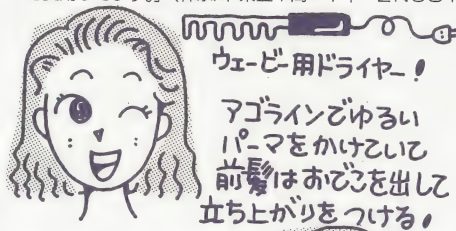 ウェービー用ドライヤー!
アゴラインでゆるい
パーマをかけていて
前髪はおでこを出して
立ち上がりをつける!